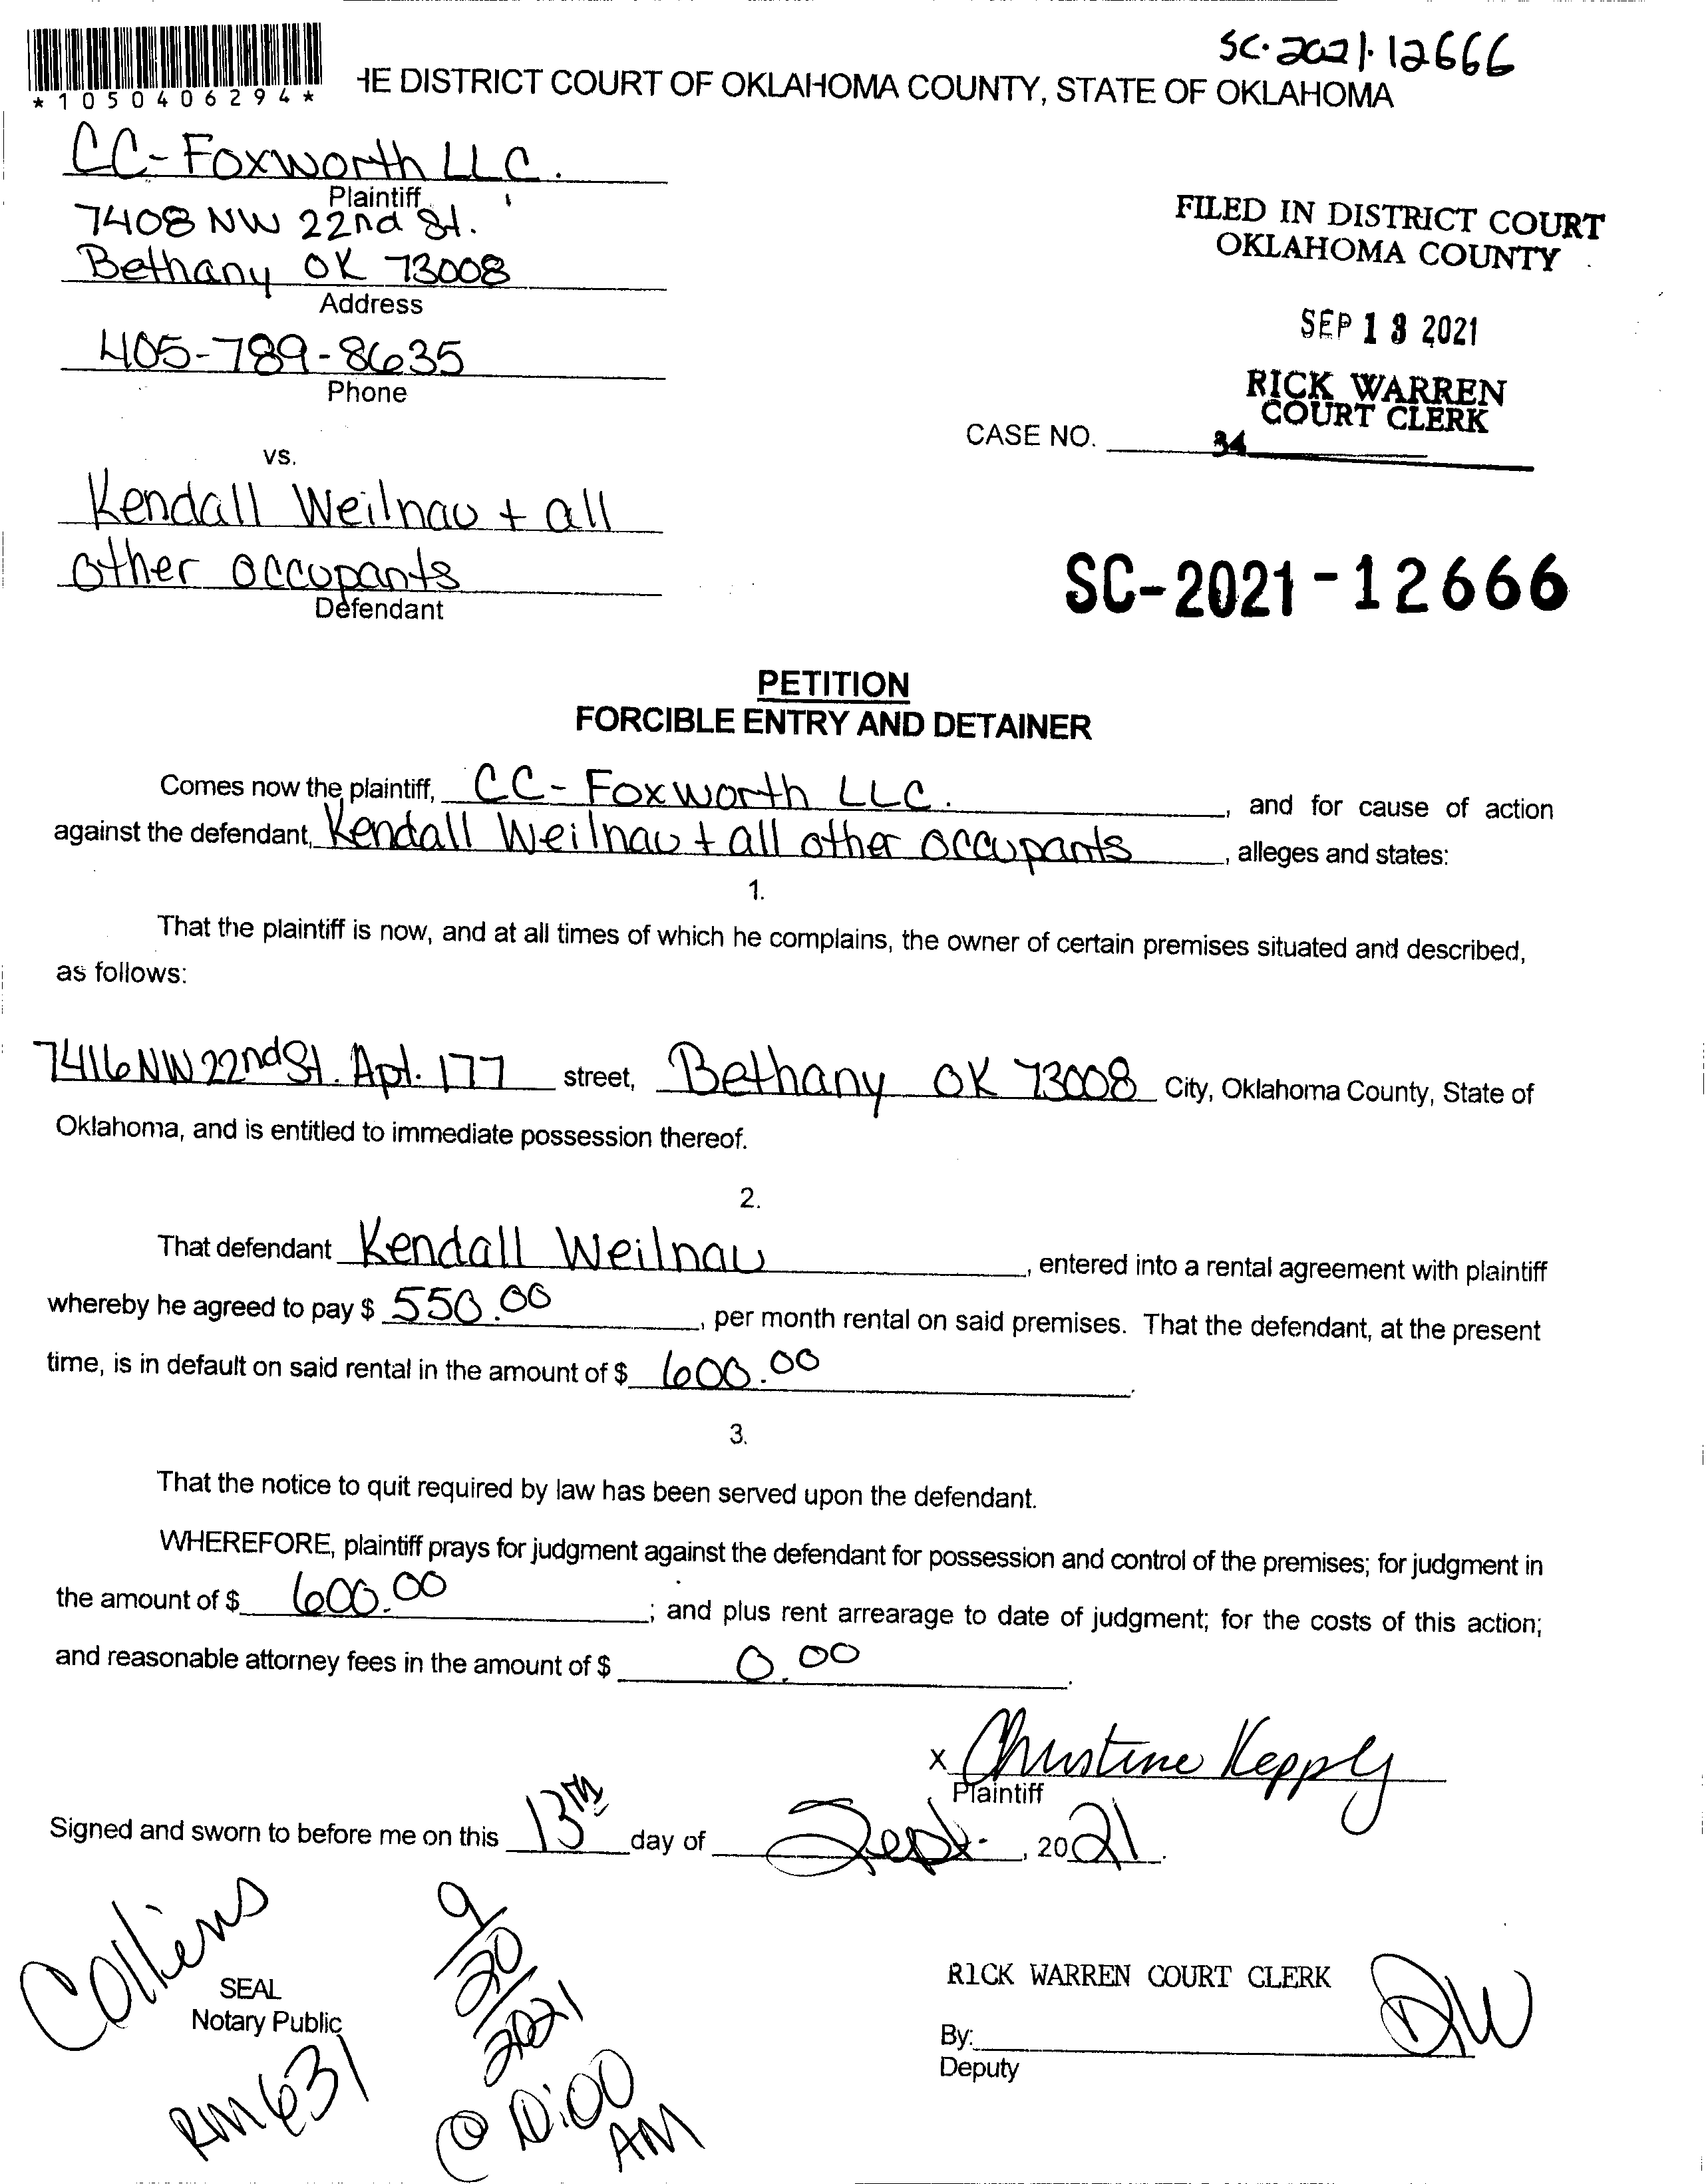 SC-2021-12666
*1050406294*
HE DISTRICT COURT OF OKLAHOMA COUNTY, STATE OF OKLAHOMA
CC-Foxworth LLC.
Plaintiff
7408 NW 22nd St.
Bethany OK 73008
Address
405-789-8635
Phone
FILED IN DISTRICT COURT
OKLAHOMA COUNTY
SEP 13 2021
RICK WARREN
COURT CLERK
CASE NO. 34
vs.
Kendall Weilnau + all
other occupants
Defendant
SC-2021-12666
PETITION
FORCIBLE ENTRY AND DETAINER
Comes now the plaintiff, CC-Foxworth LLC., and for cause of action
against the defendant, Kendall Weilnau + all other occupants, alleges and states:
1.
That the plaintiff is now, and at all times of which he complains, the owner of certain premises situated and described,
as follows:
7416 NW 22nd St. Apt. 177 street, Bethany OK 73008 City, Oklahoma County, State of
Oklahoma, and is entitled to immediate possession thereof.
2.
That defendant Kendall Weilnau, entered into a rental agreement with plaintiff
whereby he agreed to pay $ 550.00, per month rental on said premises. That the defendant, at the present
time, is in default on said rental in the amount of $ 600.00.
3.
That the notice to quit required by law has been served upon the defendant.
WHEREFORE, plaintiff prays for judgment against the defendant for possession and control of the premises; for judgment in
the amount of $ 600.00; and plus rent arrearage to date of judgment; for the costs of this action;
and reasonable attorney fees in the amount of $ 0.00.
x Christine Kepply
Plaintiff
Signed and sworn to before me on this 13th day of Sept., 2021.
Collins
SEAL
Notary Public
RM 631
9/20/2021
@ 10:00
AM
RICK WARREN COURT CLERK
By: RW
Deputy